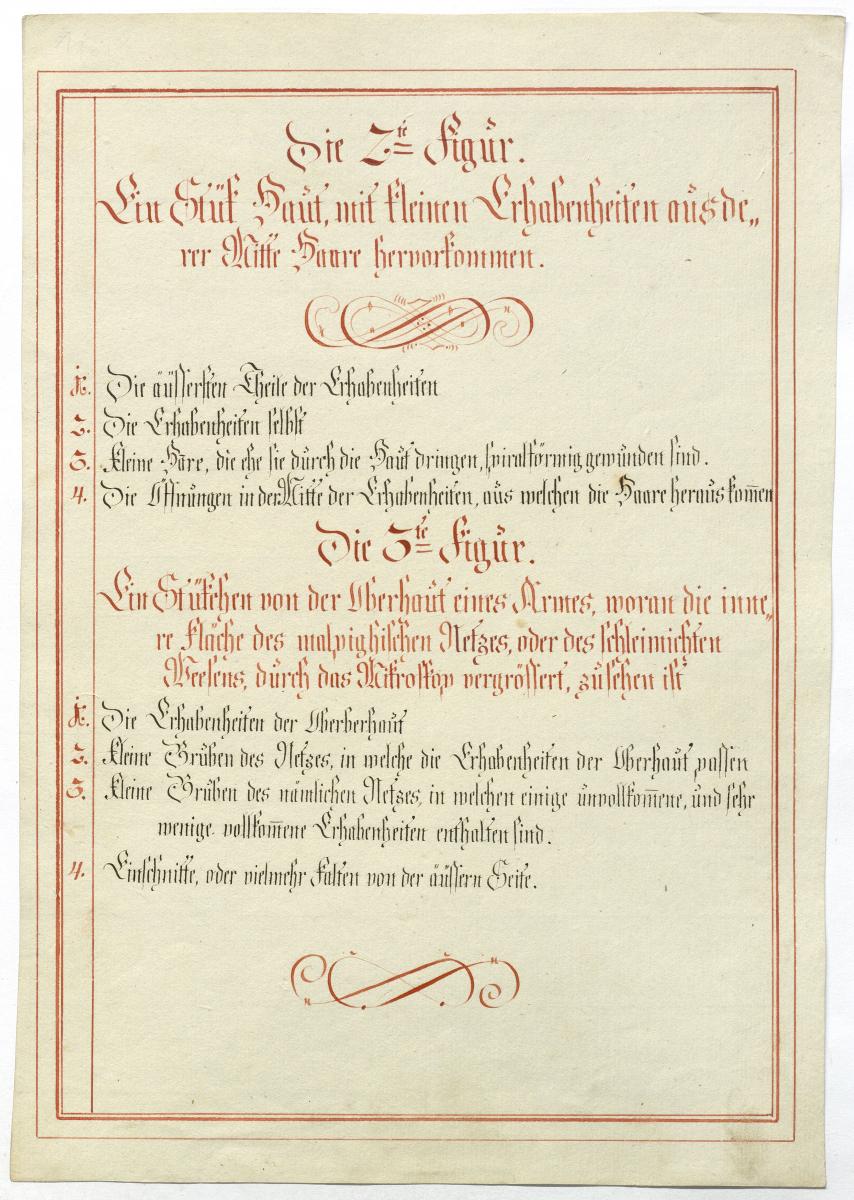 Die 2te Figur.
Ein Stük Haut, mit kleinen Erhabenheiten aus de„
rer Mitte Haare hervorkommen.
1. Die äussersten Theile der Erhabenheiten
2. Die Erhabenheiten selbst
3. Kleine Häre, die ehe sie durch die Haut dringen, spiralförmig gewunden sind.
4. Die Öffnungen in der Mitte der Erhabenheiten, aus welchen die Haare heraus kom̅en
Die 3te Figur.
Ein Stükchen von der Oberhaut eines Armes, woran die inne„
re Fläche des malpighischen Netzes, oder des schleimichten
Weesens, durch das Mikroskop vergrössert, zu sehen ist
1. Die Erhabenheiten der Oberberhaut
2. Kleine Gruben des Netzes, in welche die Erhabenheiten der Oberhaut passen
3. Kleine Gruben des nämlichen Netzes, in welchen einige unvollkom̅ene, und sehr
wenige vollkom̅ene Erhabenheiten enthalten sind.
4. Einschnitte, oder vielmehr Falten von der äussern Seite.